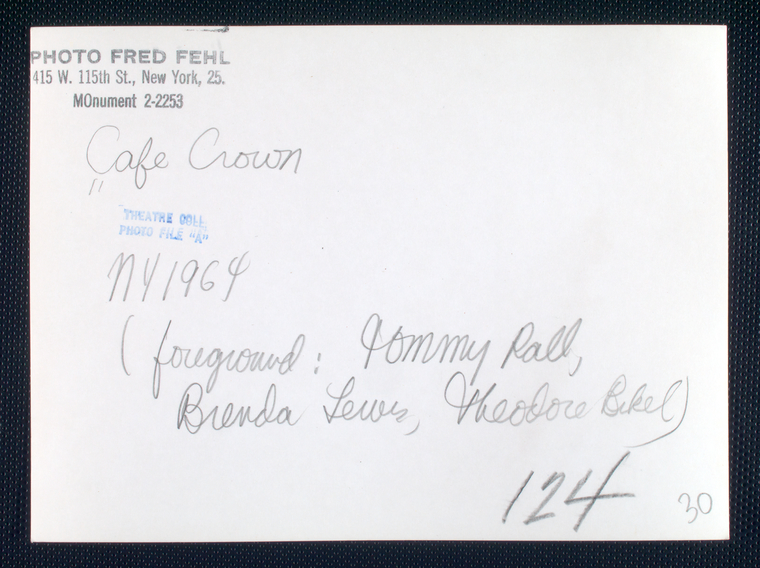 PHOTO FRED FEHL
415 W. 115th St., New York, 25.
MOnument 2-2253
Cafe Crown
"
THEATRE COLL.
PHOTO FILE "A"
NY 1964
(foreground: Tommy Rall,
Brenda Lewis, Theodore Bikel)
124
30